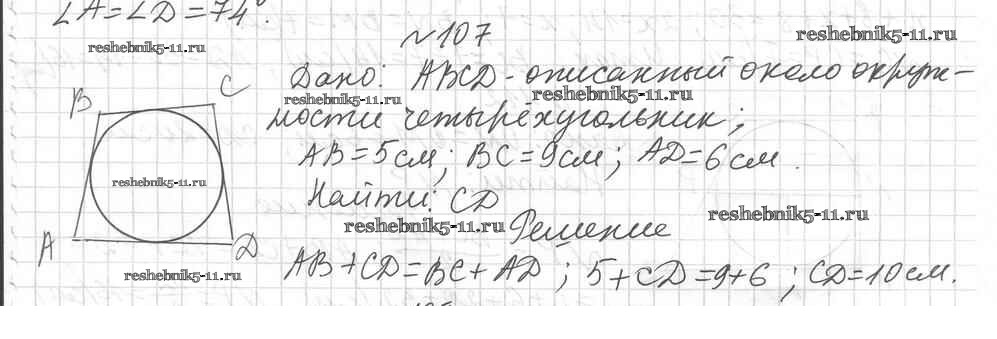 ∠A=∠D=74°.
№107
reshebnik5-11.ru
reshebnik5-11.ru
Дано: ABCD - описанный около окруж-
reshebnik5-11.ru
reshebnik5-11.ru
B
C
ности четырёхугольник;
AB=5см; BC=9см; AD=6см.
reshebnik5-11.ru
Найти: CD
reshebnik5-11.ru
reshebnik5-11.ru
Решение
A
D
AB+CD=BC+AD; 5+CD=9+6; CD=10см.
reshebnik5-11.ru